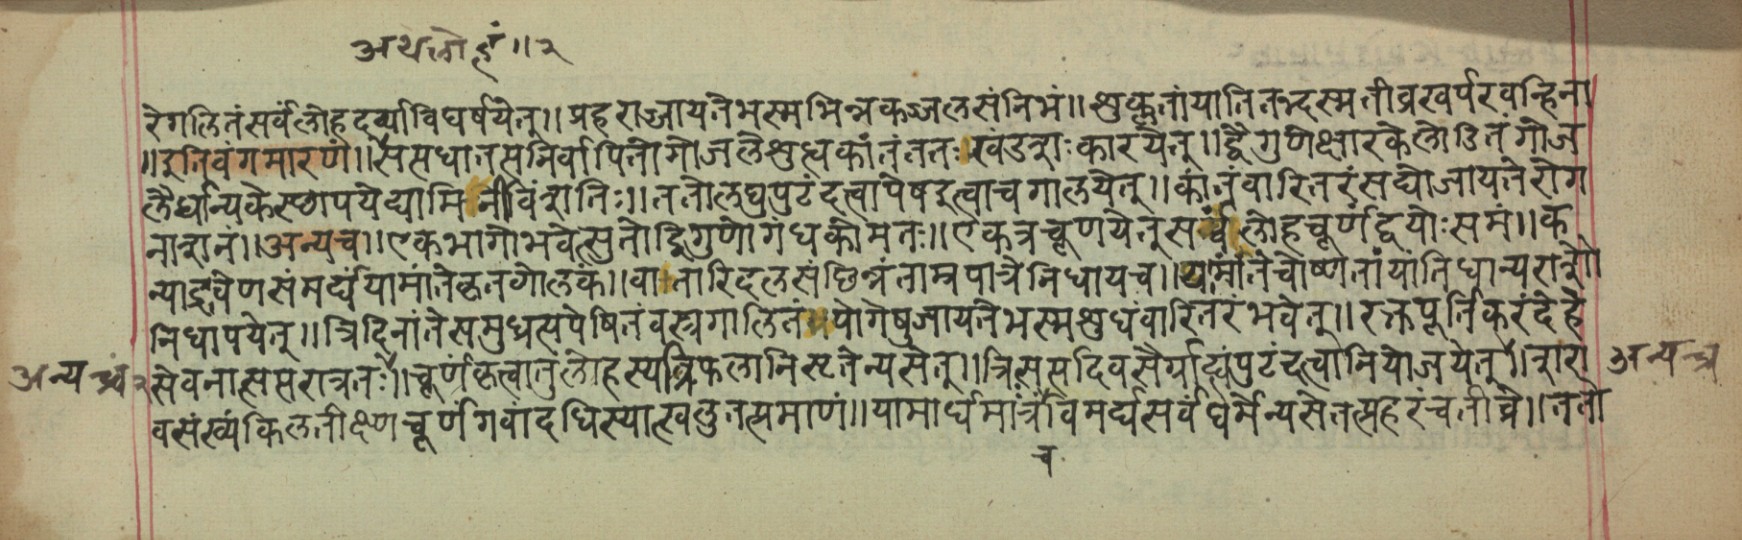 अथलोहं॥२
रेगलितंसर्वंलोहदर्व्याविघर्षयेत्॥प्रहराज्जायतेभस्मभिन्नकज्जलसंनिभं॥शुक्लतांयातितद्भस्मतीव्रखर्परवन्हिना
॥इतिवंगमारणं॥सप्तधातप्तनिर्वापितोगोजलैशुध्यकांतंततःखंडशःकारयेत्॥द्वैगुणेक्षारकेलोडितंगोज
लैर्धान्यकेस्थापयेद्यामिनीविंशतिः॥ततोलघुपुटंदत्वापेषइत्वाचगालयेत्॥कांतंवारितरंसद्योजायतेरोग
नाशनं॥अन्यच्च॥एकभागोभवेत्सुतोद्विगुणोगंधकोमतः॥एकत्रचूर्णयेत्सर्वंलोहचूर्णंद्वयोःसमं॥क
न्याद्रवेणसंमर्द्ययामांतेकृतगोलकं॥वातारिदलसंछिन्नंताम्रपात्रेनिधायच॥यामांतेचोष्णतांयांतिधान्यराशौ
निधापयेत्॥त्रिदिनांतेसमुधृत्यपेषितंवस्त्रगालितंयोगेषुजायतेभस्मशुधंवारितरंभवेत्॥रक्तपूर्तिकरंदेहे
अन्यच्च२सेवनात्सप्तरात्रतः॥चूर्णंकृत्वातुलोहस्यत्रिफलानिस्टतेन्यसेत्॥त्रिसप्तदिवसैर्याद्यंपुटंदत्वानियोजयेत्॥शरा अन्यच्च
वसंख्यंकिलतीक्ष्णचूर्णंगवांदधिस्यात्खलुतत्प्रमाणं॥यामार्धमात्रंविमर्द्यसर्वंघर्मेन्यसेतत्प्रहरंचतीव्रे॥ततो
च